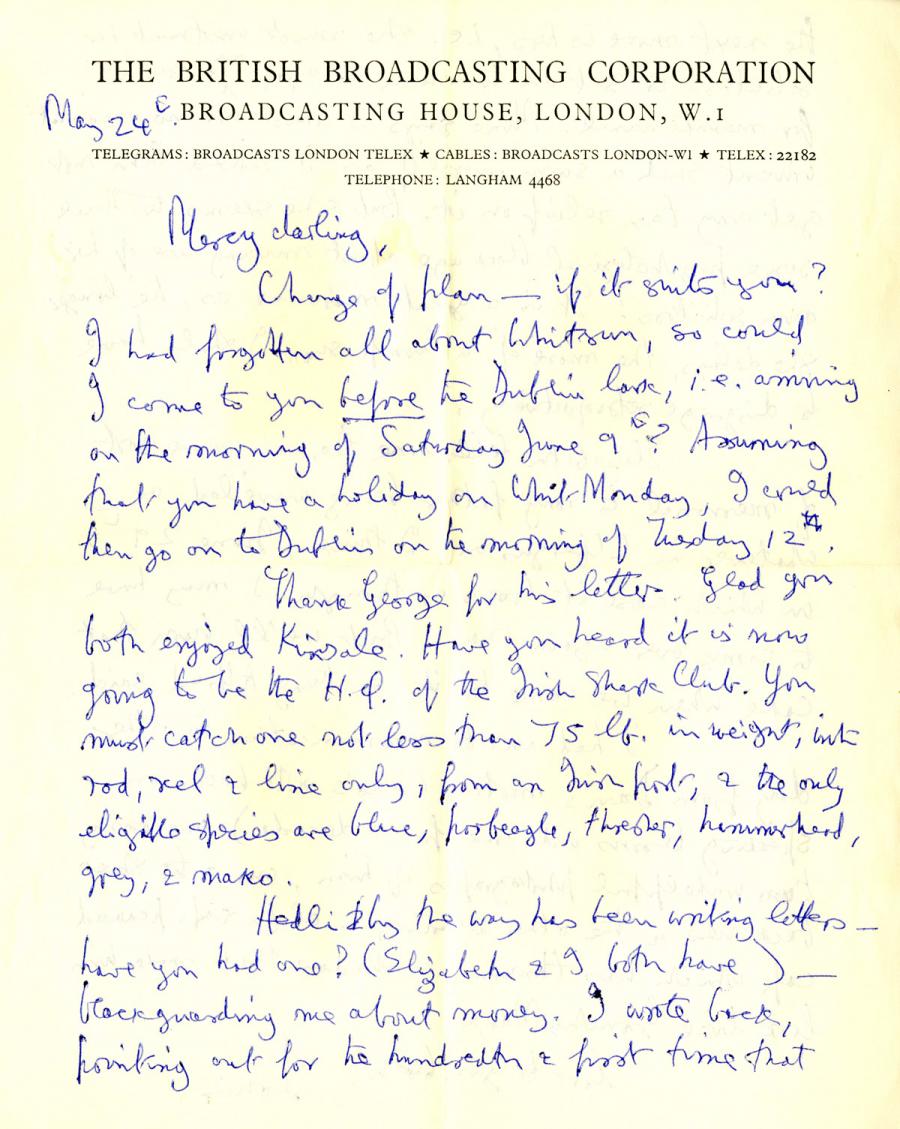 THE BRITISH BROADCASTING CORPORATION
BROADCASTING HOUSE, LONDON, W.1
May 24th.
TELEGRAMS: BROADCASTS LONDON TELEX ★ CABLES: BROADCASTS LONDON-W1 ★ TELEX: 22182
TELEPHONE: LANGHAM 4468
Mercy darling,
Change of plan — if it suits you?
I had forgotten all about Whitsun, so could
I come to you before the Dublin lark, i.e. arriving
on the morning of Saturday June 9th? Assuming
that you have a holiday on Whit-Monday, I could
then go on to Dublin on the morning of Tuesday 12th.
Thank George for his letter. Glad you
both enjoyed Kinsale. Have you heard it is now
going to be the H.Q. of the Irish Shark Club. You
must catch one not less than 75 lb. in weight, with
rod, reel & line only, from an Irish port, & the only
eligible species are blue, porbeagle, thresher, hammerhead,
grey, & mako.
Hedli by the way has been writing letters —
have you had one? (Elizabeth & I both have) —
blackguarding me about money. I wrote back,
pointing out for the hundredth & first time that